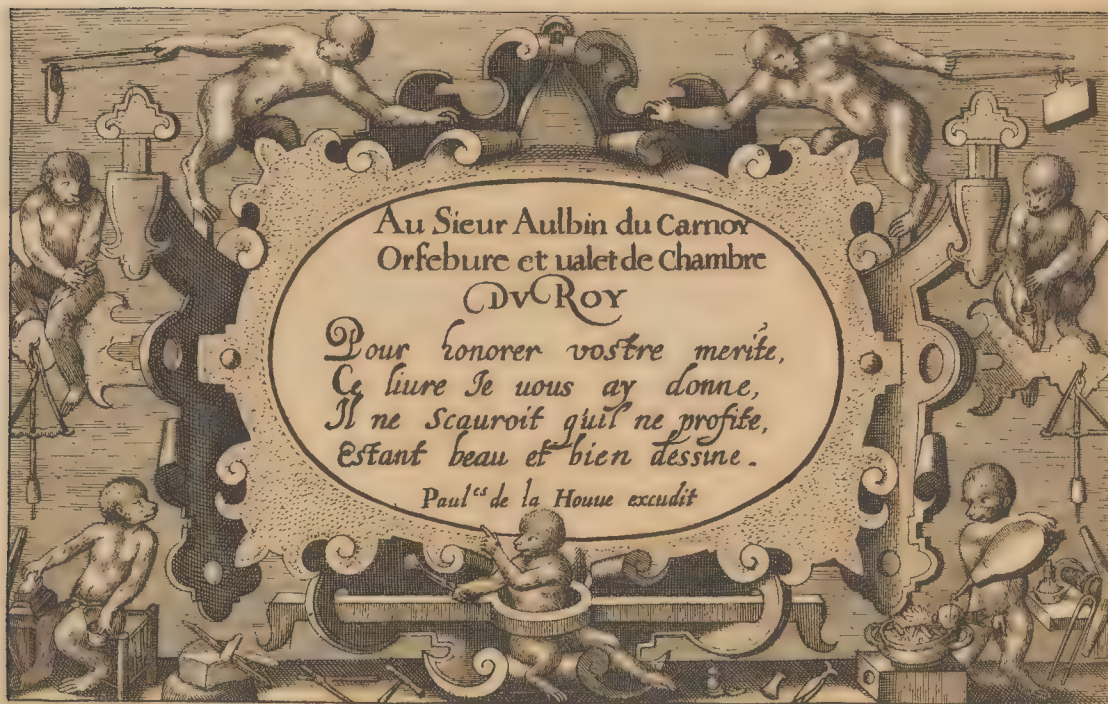 Au Sieur Aulbin du Carnoy
Orfebure et ualet de Chambre
DV ROY
Pour honorer vostre merite,
Ce liure Je uous ay donne,
Il ne Scauroit quil ne profite,
Estant beau et bien dessine.
Paul^cs de la Houue excudit